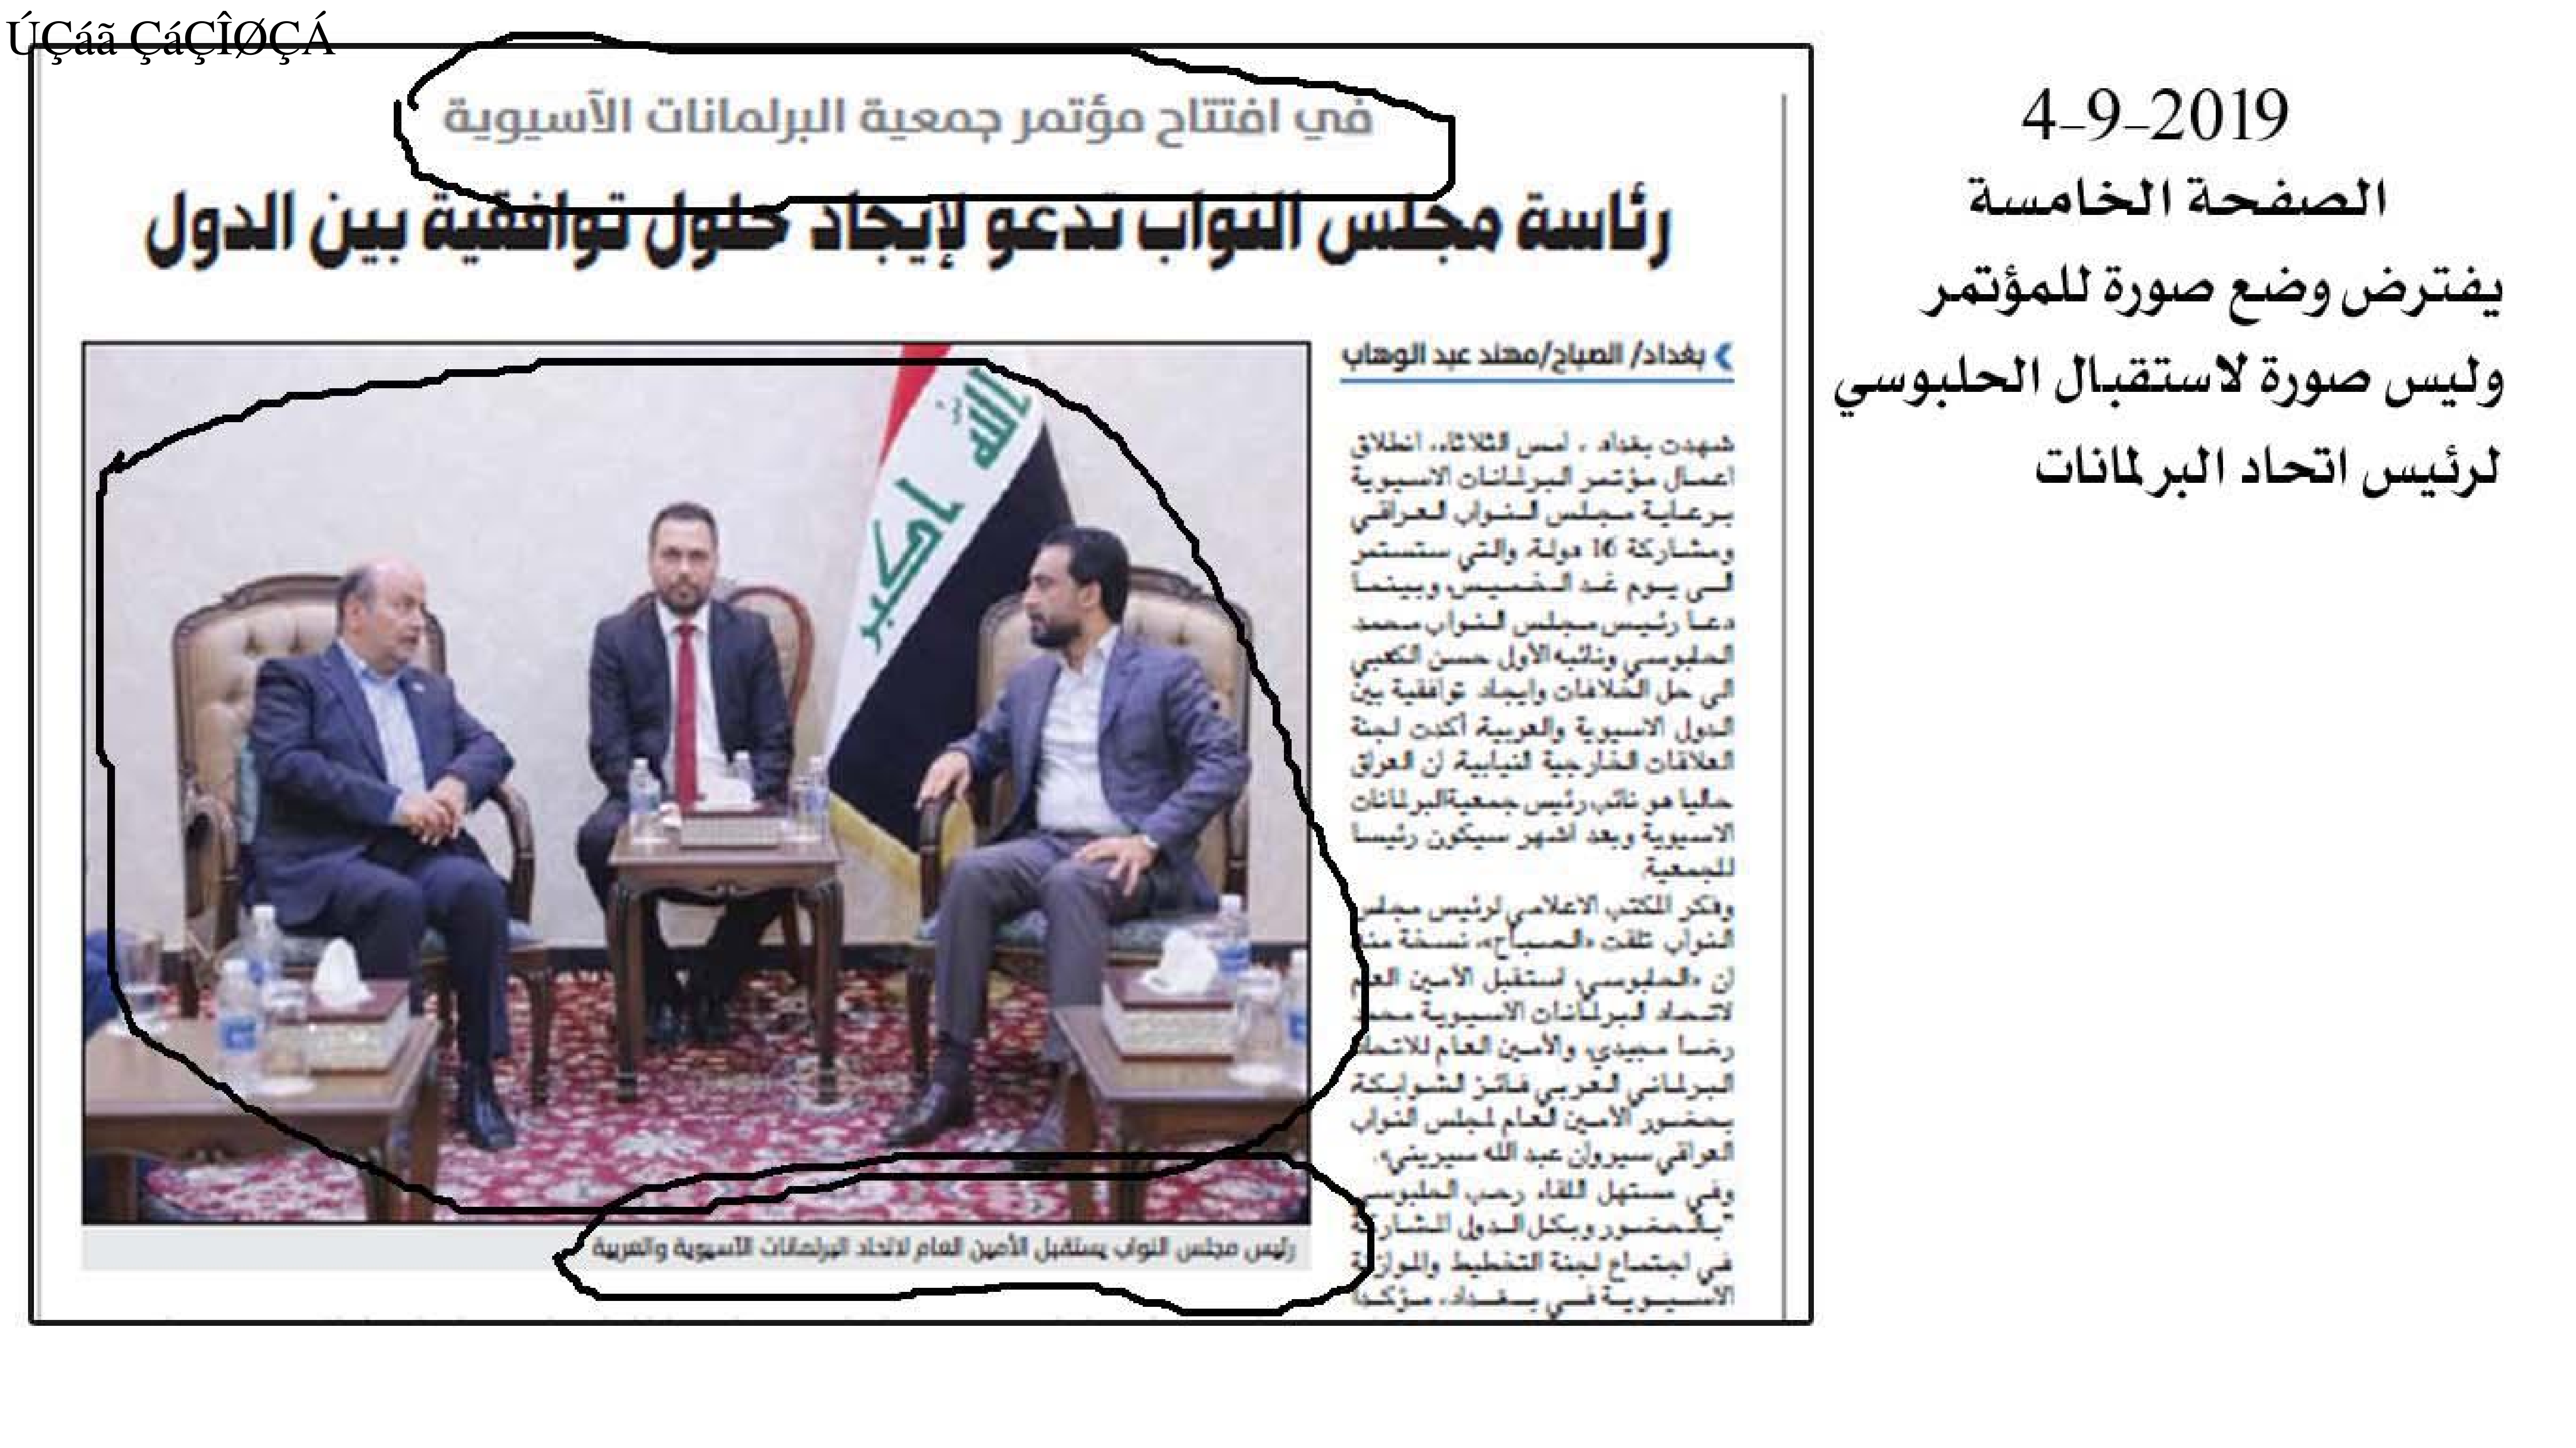 ÚÇáã ÇáÇÎØÇÁ
4-9-2019
الصفحة الخامسة
يفترض وضع صورة للمؤتمر
وليس صورة لاستقبال الحلبوسي
لرئيس اتحاد البرلمانات
في افتتاح مؤتمر جمعية البرلمانات الآسيوية
رئاسة مجلس النواب تدعو لإيجاد حلول توافقية بين الدول
بغداد/ الصباح/مهند عبد الوهاب
شهدت بغداد ، امس الثلاثاء، انطلاق
اعمال مؤتمر البرلمانات الاسيوية
برعاية مجلس النواب العراقي
ومشاركة 16 دولة، والتي ستستمر
الى يوم غد الخميس، وبينما
دعا رئيس مجلس النواب محمد
الحلبوسي ونائبه الأول حسن الكعبي
الى حل الخلافات وايجاد توافقية بين
الدول الاسيوية والعربية، أكدت لجنة
العلاقات الخارجية النيابية، ان العراق
حاليا هو نائب رئيس جمعيةالبرلمانات
الاسيوية وبعد اشهر سيكون رئيسا
للجمعية.
وذكر المكتب الاعلامي لرئيس مجلس
النواب تلقت «الصباح»، نسخة منه
ان «الحلبوسي، استقبل الأمين العام
لاتحاد البرلمانات الاسيوية محمد
رضا مجيدي، والأمين العام للاتحاد
البرلماني العربي فائز الشوابكة
بحضور الامين العام لمجلس النواب
العراقي سيروان عبد الله سيريني».
وفي مستهل اللقاء رحب الحلبوسي
"بالحضور وبكل الدول المشاركة
في اجتماع لجنة التخطيط والموازنة
الآسيوية في بغداد، مؤكدا
الله اكبر
رئيس مجلس النواب يستقبل الأمين العام لاتحاد البرلمانات الآسيوية والعربية